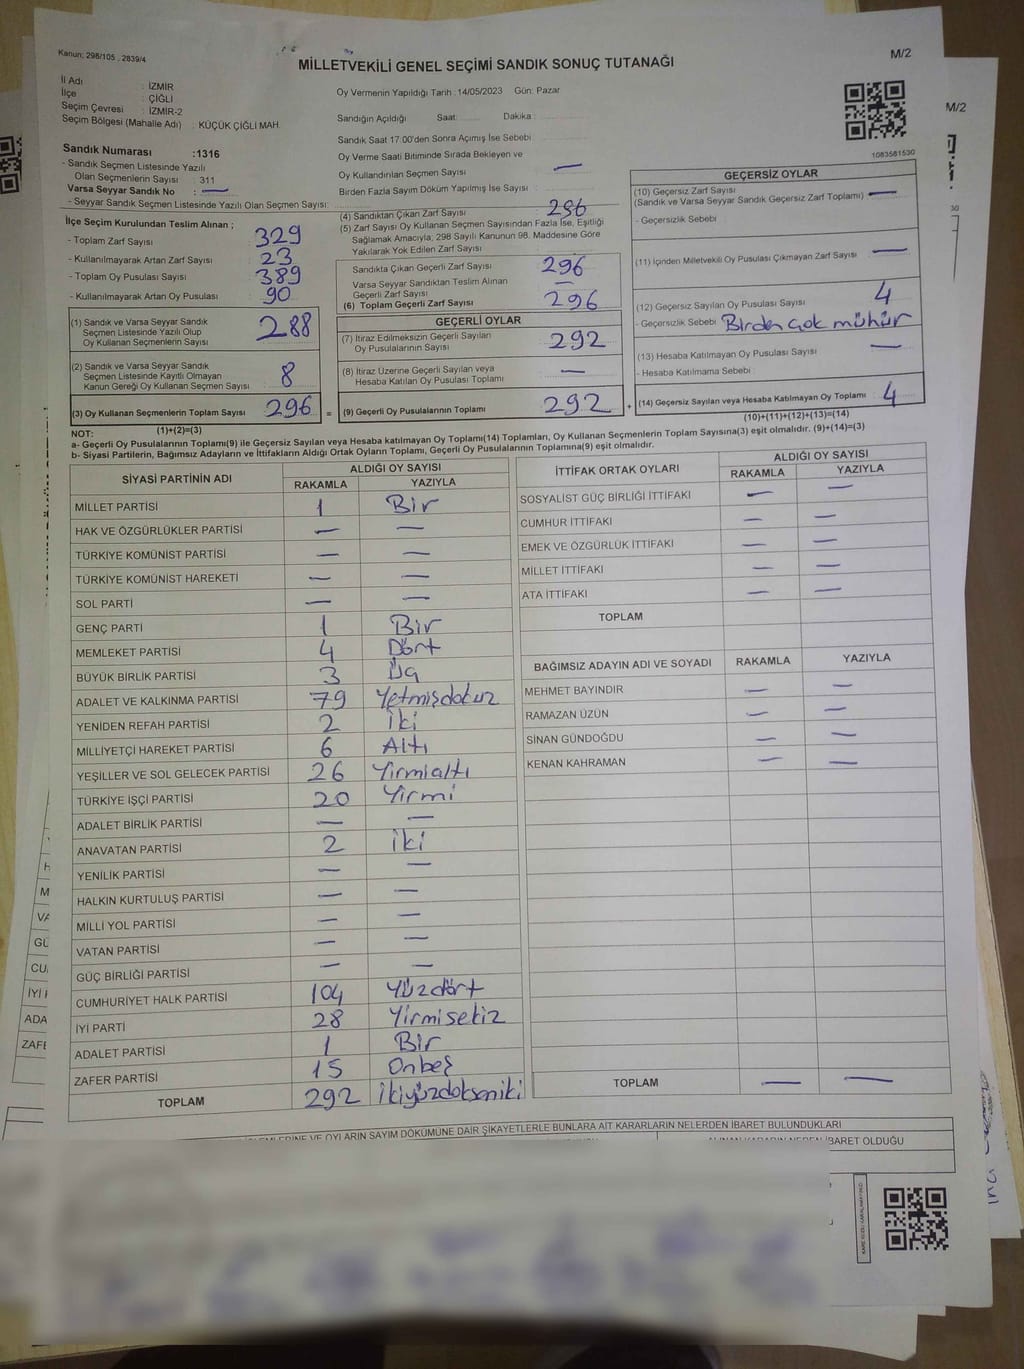 Kanun: 298/105 , 2839/4
M/2
MİLLETVEKİLİ GENEL SEÇİMİ SANDIK SONUÇ TUTANAĞI
İl Adı : İZMİR
İlçe : ÇİĞLİ
Seçim Çevresi : İZMİR-2
Seçim Bölgesi (Mahalle Adı) : KÜÇÜK ÇİĞLİ MAH.
Sandık Numarası :1316
- Sandık Seçmen Listesinde Yazılı
Olan Seçmenlerin Sayısı : 311
Varsa Seyyar Sandık No : —
- Seyyar Sandık Seçmen Listesinde Yazılı Olan Seçmen Sayısı:
Oy Vermenin Yapıldığı Tarih :14/05/2023 Gün: Pazar
Sandığın Açıldığı Saat: Dakika :
Sandık Saat 17:00'den Sonra Açımış İse Sebebi :
Oy Verme Saati Bitiminde Sırada Bekleyen ve
Oy Kullandırılan Seçmen Sayısı : —
Birden Fazla Sayım Döküm Yapılmış İse Sayısı :
1083581530
İlçe Seçim Kurulundan Teslim Alınan ;
- Toplam Zarf Sayısı : 329
- Kullanılmayarak Artan Zarf Sayısı : 23
- Toplam Oy Pusulası Sayısı : 389
- Kullanılmayarak Artan Oy Pusulası : 90
(1) Sandık ve Varsa Seyyar Sandık
Seçmen Listesinde Yazılı Olup
Oy Kullanan Seçmenlerin Sayısı : 288
(2) Sandık ve Varsa Seyyar Sandık
Seçmen Listesinde Kayıtlı Olmayan
Kanun Gereği Oy Kullanan Seçmen Sayısı : 8
(3) Oy Kullanan Seçmenlerin Toplam Sayısı : 296 =
(1)+(2)=(3)
(4) Sandıktan Çıkan Zarf Sayısı : 296
(5) Zarf Sayısı Oy Kullanan Seçmen Sayısından Fazla İse, Eşitliği
Sağlamak Amacıyla; 298 Sayılı Kanunun 98. Maddesine Göre
Yakılarak Yok Edilen Zarf Sayısı
Sandıkta Çıkan Geçerli Zarf Sayısı : 296
Varsa Seyyar Sandıktan Teslim Alınan
Geçerli Zarf Sayısı : —
(6) Toplam Geçerli Zarf Sayısı : 296
GEÇERLİ OYLAR
(7) İtiraz Edilmeksizin Geçerli Sayılan
Oy Pusulalarının Sayısı : 292
(8) İtiraz Üzerine Geçerli Sayılan veya
Hesaba Katılan Oy Pusulası Toplamı : —
(9) Geçerli Oy Pusulalarının Toplamı : 292 +
GEÇERSİZ OYLAR
(10) Geçersiz Zarf Sayısı
(Sandık ve Varsa Seyyar Sandık Geçersiz Zarf Toplamı) : —
- Geçersizlik Sebebi :
(11) İçinden Milletvekili Oy Pusulası Çıkmayan Zarf Sayısı : —
(12) Geçersiz Sayılan Oy Pusulası Sayısı : 4
- Geçersizlik Sebebi : Birden çok mühür
(13) Hesaba Katılmayan Oy Pusulası Sayısı : —
- Hesaba Katılmama Sebebi :
(14) Geçersiz Sayılan veya Hesaba Katılmayan Oy Toplamı : 4
(10)+(11)+(12)+(13)=(14)
NOT:
a- Geçerli Oy Pusulalarının Toplamı(9) ile Geçersiz Sayılan veya Hesaba katılmayan Oy Toplamı(14) Toplamları, Oy Kullanan Seçmenlerin Toplam Sayısına(3) eşit olmalıdır. (9)+(14)=(3)
b- Siyasi Partilerin, Bağımsız Adayların ve İttifakların Aldığı Ortak Oyların Toplamı, Geçerli Oy Pusulalarının Toplamına(9) eşit olmalıdır.
SİYASİ PARTİNİN ADI ALDIĞI OY SAYISI
RAKAMLA YAZIYLA
MİLLET PARTİSİ 1 Bir
HAK VE ÖZGÜRLÜKLER PARTİSİ — —
TÜRKİYE KOMÜNİST PARTİSİ — —
TÜRKİYE KOMÜNİST HAREKETİ — —
SOL PARTİ — —
GENÇ PARTİ 1 Bir
MEMLEKET PARTİSİ 4 Dört
BÜYÜK BİRLİK PARTİSİ 3 Üç
ADALET VE KALKINMA PARTİSİ 79 Yetmişdokuz
YENİDEN REFAH PARTİSİ 2 İki
MİLLİYETÇİ HAREKET PARTİSİ 6 Altı
YEŞİLLER VE SOL GELECEK PARTİSİ 26 Yirmialtı
TÜRKİYE İŞÇİ PARTİSİ 20 Yirmi
ADALET BİRLİK PARTİSİ — —
ANAVATAN PARTİSİ 2 İki
YENİLİK PARTİSİ — —
HALKIN KURTULUŞ PARTİSİ — —
MİLLİ YOL PARTİSİ — —
VATAN PARTİSİ — —
GÜÇ BİRLİĞİ PARTİSİ — —
CUMHURİYET HALK PARTİSİ 104 Yüzdört
İYİ PARTİ 28 Yirmisekiz
ADALET PARTİSİ 1 Bir
ZAFER PARTİSİ 15 Onbeş
TOPLAM 292 İkiyüzdoksaniki
İTTİFAK ORTAK OYLARI ALDIĞI OY SAYISI
RAKAMLA YAZIYLA
SOSYALİST GÜÇ BİRLİĞİ İTTİFAKI — —
CUMHUR İTTİFAKI — —
EMEK VE ÖZGÜRLÜK İTTİFAKI — —
MİLLET İTTİFAKI — —
ATA İTTİFAKI — —
TOPLAM
BAĞIMSIZ ADAYIN ADI VE SOYADI RAKAMLA YAZIYLA
MEHMET BAYINDIR — —
RAMAZAN ÜZÜN — —
SİNAN GÜNDOĞDU — —
KENAN KAHRAMAN — —
TOPLAM — —
VE OYLARIN SAYIM DÖKÜMÜNE DAİR ŞİKAYETLERLE BUNLARA AİT KARARLARIN NELERDEN İBARET BULUNDUKLARI
İBARET OLDUĞU
M/2